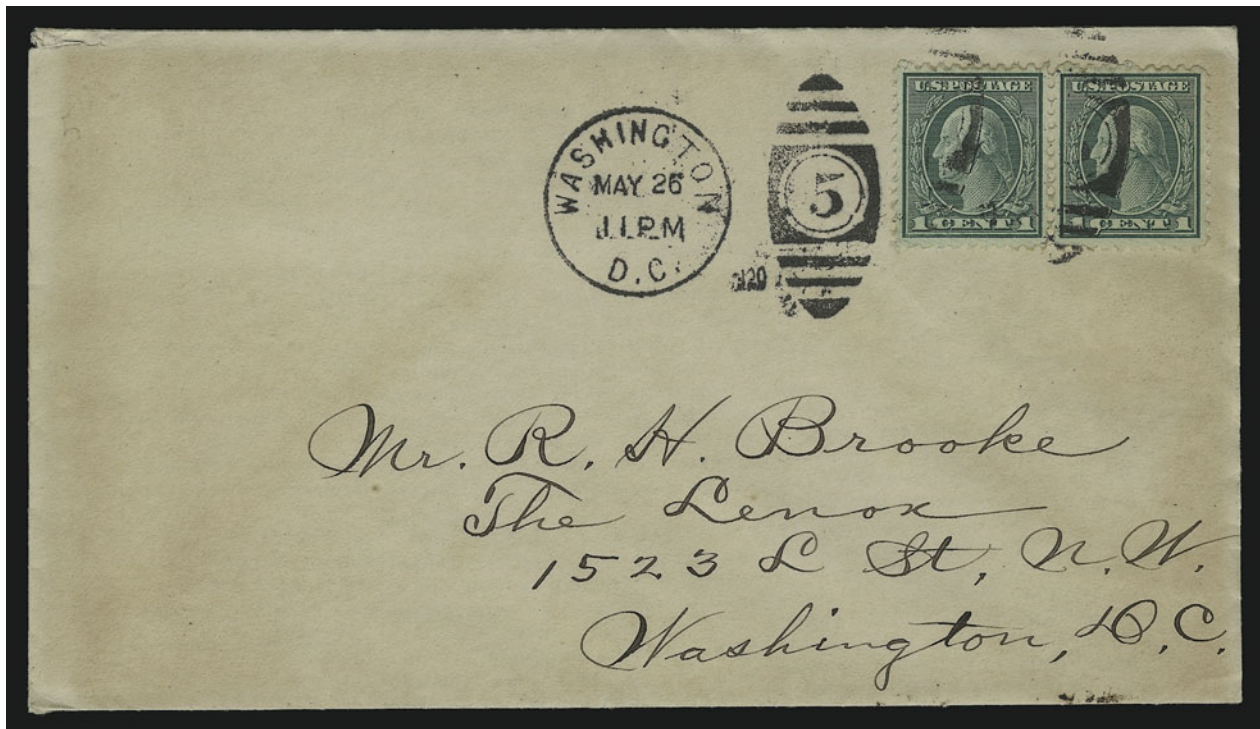 WASHINGTON
MAY 26
11 PM
D.C.
5
U.S. POSTAGE
1 CENT 1
U.S. POSTAGE
1 CENT 1
Mr. R. H. Brooke
The Lenox
1523 L St, N.W.
Washington, D.C.